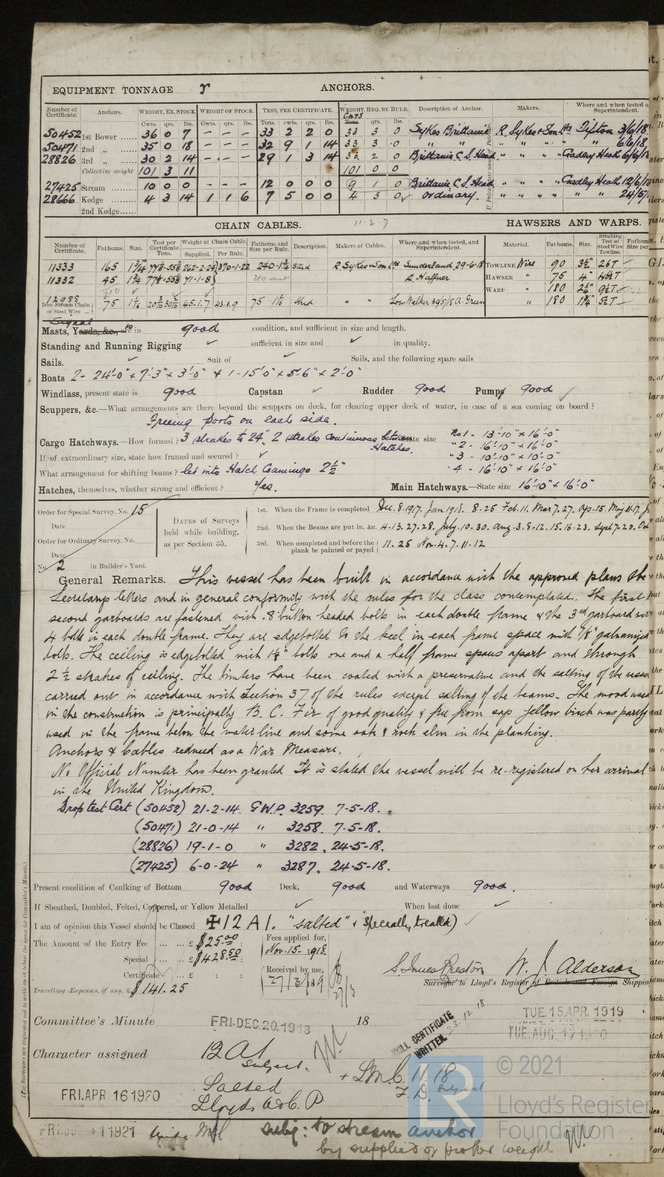 EQUIPMENT TONNAGE r ANCHORS.
Number of Certificate. Anchors. WEIGHT, EX. STOCK WEIGHT OF STOCK. TEST, PER CERTIFICATE. WEIGHT, REQ. BY RULE. Description of Anchor. Makers. Where and when tested a Superintendent.
Cwts. qrs. lbs. Cwts. qrs. lbs. Tons. cwts. qrs. lbs.
50452 1st Bower 36 0 7 - - - 33 2 2 0 33 3 0 Sykes Brittanic R. Sykes & Son Ltd Tipton 3/6/18
50471 2nd „ 35 0 18 - - - 32 9 1 14 33 3 0 " " " " " " 6/6/18
28826 3rd „ 30 2 14 - - - 29 1 3 14 Brittanic C.S. Head " " " Cradley Heath 6/6/18
Collective weight 101 3 11 101 0 0
27425 Stream 10 0 0 - - - 12 0 0 0 9 1 0 Brittanic C.S. Head " " " Cradley Heath 12/6/18
28666 Kedge 4 3 14 1 1 6 7 5 0 0 4 3 0 Ordinary. " " "
2nd Kedge
CHAIN CABLES. HAWSERS AND WARPS.
Number of Certificate. Fathoms. Size. Test per Certificate. Tons. Weight of Chain Cable. Supplied. Per Rule. Fathoms and Size per Rule. Description. Makers of Cables. Where and when tested, and Superintendent. Material. Fathoms. Size. Breaking Test of Steel Wire Towline.
11333 165 240-1¾ Stud R Sykes & Son Ltd Sunderland 29-6-18 TOWLINE Wire 90 3½ 26T
11332 45 L Haffner HAWSER " 75 4"
12988 75 1⅛ 45.1.7 75 1⅛ Stud " " WARP " 180 2½"
Iron Stream Chain or Steel Wire " 180
Masts, Yards, &c., are in good condition, and sufficient in size and length.
Standing and Running Rigging ✓ sufficient in size and ✓ in quality.
Sails. Suit of ✓ Sails, and the following spare sails
Boats 2- 24'-0" x 7'-3" x 3'-0" & 1-15'-0" x 5'-6" x 2'-0"
Windlass, present state is good Capstan ✓ Rudder good Pumps good ✓
Scuppers, &c.—What arrangements are there beyond the scuppers on deck, for clearing upper deck of water, in case of a sea coming on board?
Freeing ports on each side.
Cargo Hatchways.—How formed? 3 strakes to 24", 2 strakes continuous between Hatches. state size No 1 - 13'-10" x 16'-0"
If of extraordinary size, state how framed and secured? ✓ " 2 - 16'-10" x 16'-0"
" 3 - 10'-10" x 10'-0"
What arrangement for shifting beams? Let into Hatch Coamings 2½" " 4 - 16'-10" x 16'-0"
Hatches, themselves, whether strong and efficient? Yes. Main Hatchways.—State size 16'-10" x 16'-0"
Order for Special Survey, No. 15
Date
Order for Ordinary Survey, No.
Date
No. 2 in Builder's Yard.
DATES of Surveys held while building, as per Section 35.
1st. When the Frame is completed Dec. 8. 1917. Jan 1918. 8. 25 Feb. 11. Mar 7. 27. Ap. 15. May 11. 17.
2nd. When the Beams are put in, &c. 4. 13. 27. 28. July. 10. 30. Aug. 3. 8. 12. 15. 16. 23. Sept 7. 20.
3rd. When completed and before the plank be painted or payed 11. 25 Nov. 4. 7. 11. 12
General Remarks. This vessel has been built in accordance with the approved plans the
Secretarys letters and in general conformity with the rules for the class contemplated. The first &
second garboards are fastened with 8 button headed bolts in each double frame & the 3rd garboard with
4 bolts in each double frame. They are edgebolted to the keel in each frame space with 1⅛ galvanised
bolts. The ceiling is edgebolted with 1⅛" bolts one and a half frame spaces apart and through
2½ strakes of ceiling. The timbers have been coated with a preservative and the salting of the vessel
carried out in accordance with Section 37 of the rules except salting of the beams. The wood used
in the construction is principally B. C. Fir of good quality & free from sap yellow birch was partly
used in the frame below the water line and some oak & rock elm in the planking.
Anchors & Cables reduced as a War Measure.
No Official Number has been granted It is stated the vessel will be re-registered on her arrival
in the United Kingdom.
Drop test Cert (50452) 21-2-14. G.W.P. 3259. 7-5-18.
(50471) 21-0-14 " 3258. 7-5-18.
(28826) 19-1-0 " 3282. 24-5-18.
(27425) 6-0-24 " 3287. 24-5-18.
Present condition of Caulking of Bottom good Deck, good and Waterways good.
If Sheathed, Doubled, Felted, Coppered, or Yellow Metalled ✓ When last done ✓
I am of opinion this Vessel should be Classed ✠ 12 A 1. "salted" & specially treated)
The Amount of the Entry Fee £ $25.00
Special £ $428.50
Certificate £
Travelling Expenses, if any, £ $141.25
Fees applied for, Nov. 15. 1918.
Received by me, 27/3/19
S. Innes Preston W. J. Alderson
Surveyor to Lloyd's Register of British and Foreign Shipping
Committee's Minute FRI. DEC. 20. 1918 18
TUE. 15 APR. 1919
TUE. AUG. 17 1920
HULL CERTIFICATE WRITTEN. 23.12.18
Character assigned 12 A 1
Subject.
Salted
Lloyds A & C. P
+ LMC 11.18
F.D.
FRI. APR. 16 1920
1921
subj: to stream anchor
by supplied of proper weight
(The Surveyors are requested not to write on or below the space for Committee's Minute.)
© 2021
LR Lloyd's Register
Foundation